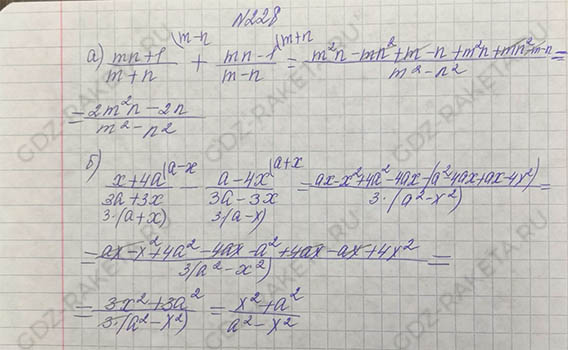 №228
а) (mn+1)/(m+n) \m-n + (mn-1)/(m-n) \m+n = (m²n - mn² + m - n + m²n + mn² - m - n)/(m² - n²) =
= (2m²n - 2n)/(m² - n²)
б) (x+4a)/(3a+3x) \a-x - (a-4x)/(3a-3x) \a+x = (ax - x² + 4a² - 4ax - (a² - 4ax + ax - 4x²))/(3·(a² - x²)) =
3·(a+x) 3(a-x)
= (ax - x² + 4a² - 4ax - a² + 4ax - ax + 4x²)/(3(a² - x²)) =
= (3x² + 3a²)/(3·(a² - x²)) = (x² + a²)/(a² - x²)
GDZ-RAKETA.RU